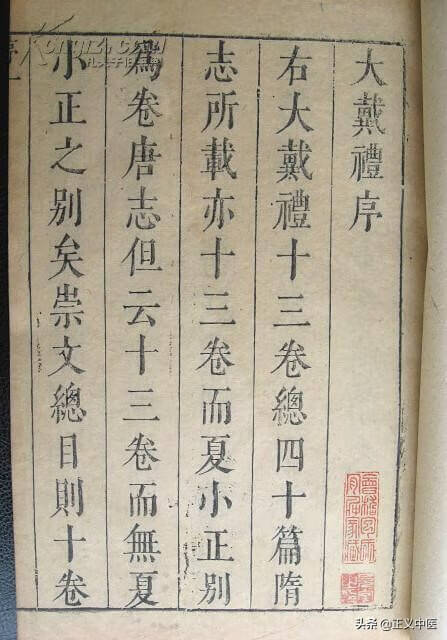 大戴禮序
右大戴禮十三卷總四十篇隋
志所載亦十三卷而夏小正別
爲卷唐志但云十三卷而無夏
小正之別矣崇文總目則十卷
头条 @正义中医